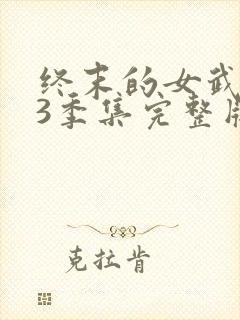 终末的女武
3季集完整
克拉肯